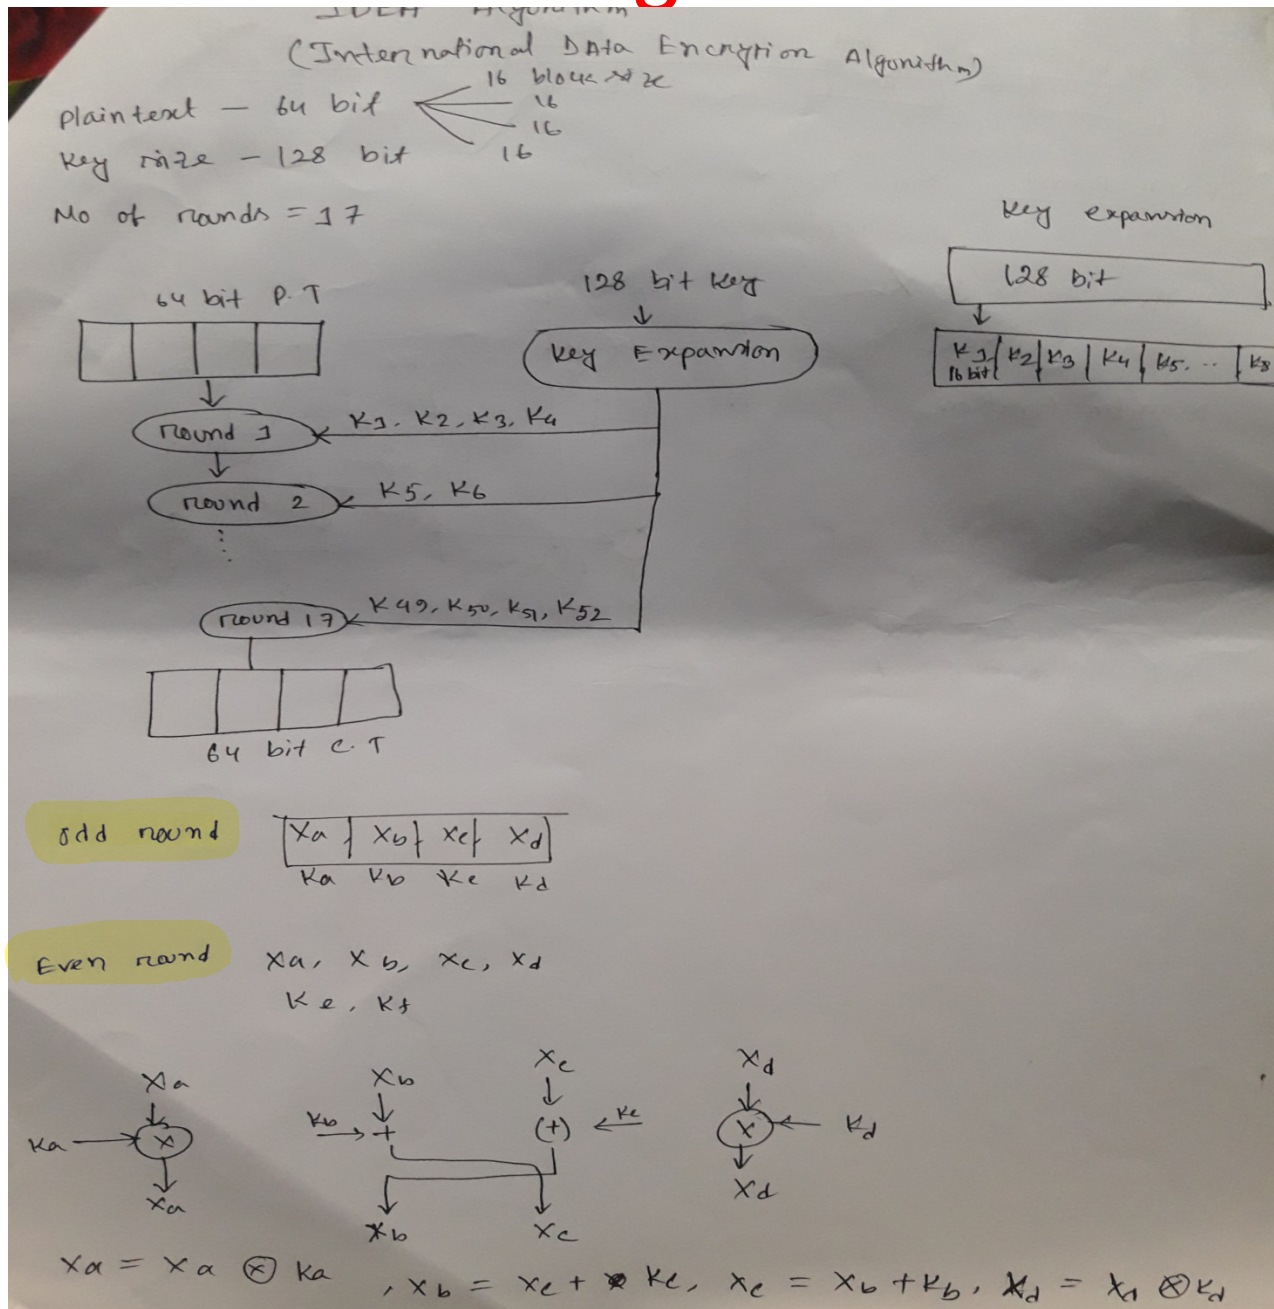 IDEA Algorithm
(International DAta Encrytion Algorithm)
plaintext - 64 bit
16 block size
16
16
16
Key size - 128 bit
No of rounds = 17
Key expansion
128 bit
K1 K2 K3 K4 K5. .. K8
16 bit
64 bit P.T
128 bit key
Key Expansion
round 1
K1, K2, K3, K4
round 2
K5, K6
round 17
K49, K50, K51, K52
64 bit C.T
odd round
Xa Xb Xc Xd
Ka Kb Kc Kd
Even round
Xa, Xb, Xc, Xd
Ke, Kf
Xa Xb Xc Xd
Ka × Kb + (+) Kc × Kd
Xa Xb Xc Xd
Xa = Xa ⊗ Ka , Xb = Xc + Kc, Xc = Xb + Kb, Xd = Xd ⊗ Kd